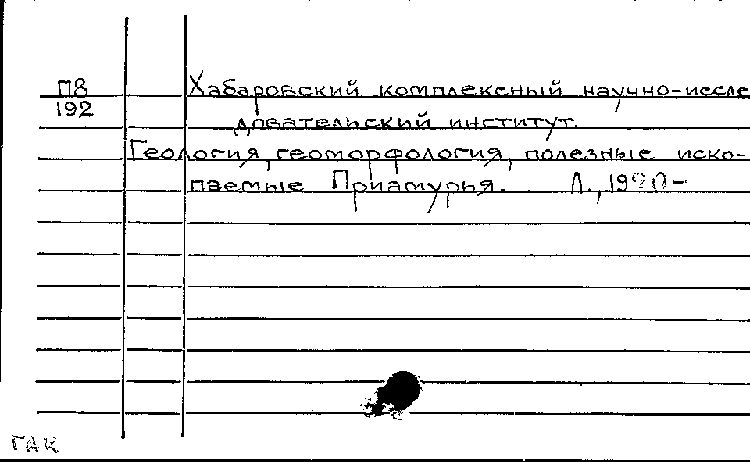 П8
192
Хабаровский комплексный научно-иссле
довательский институт.
Геология, геоморфология, полезные иско-
паемые Приамурья. Л., 1970-
ГАК